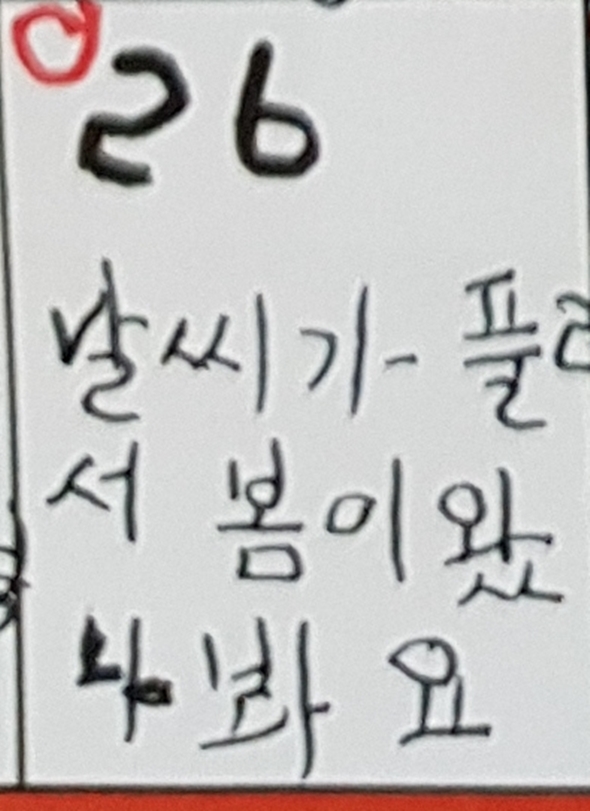 26
날씨가 플려
서 봄이왔
나봐요